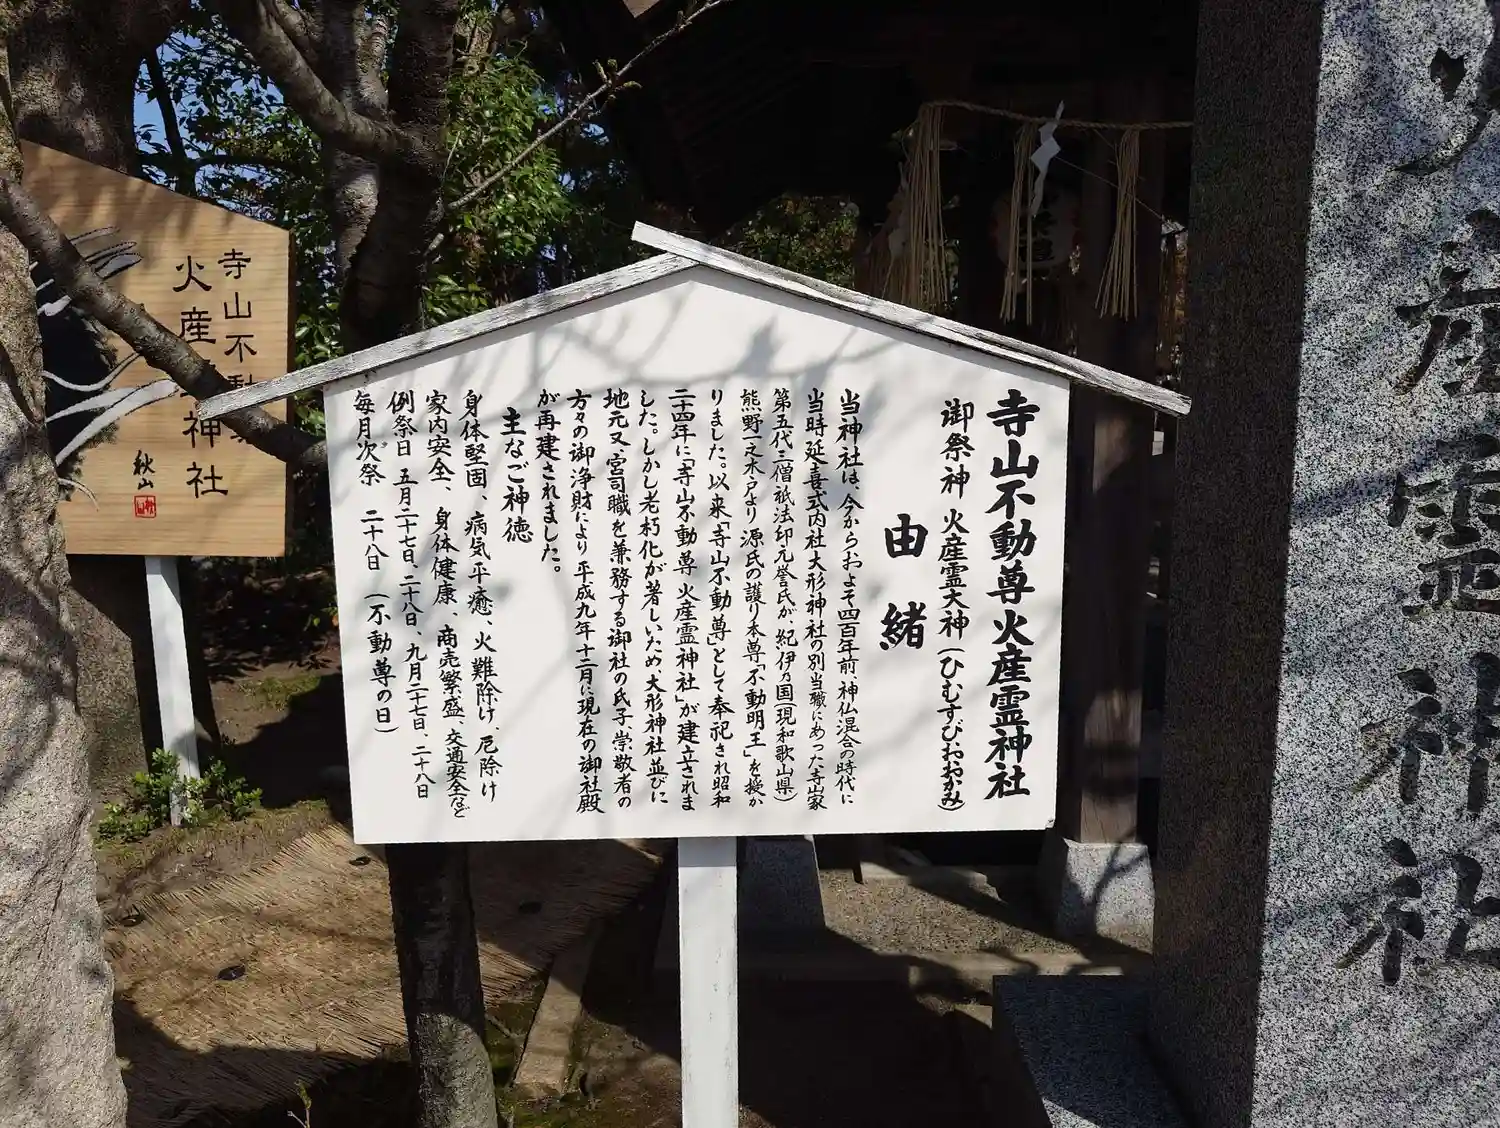 寺山不動尊火産霊神社
御祭神 火産霊大神(ひむすびおおかみ)
由緒
当神社は、今からおよそ四百年前、神仏混合の時代に
当時延喜式内社大形神社の別当職にあった寺山家
第五代三僧祇法印元誉氏が、紀伊乃国(現和歌山県)
熊野一之木戸より源氏の護り本尊「不動明王」を授か
りました。以来「寺山不動尊」として奉祀され昭和
二十四年に「寺山不動尊 火産霊神社」が建立されま
した。しかし老朽化が著しいため、大形神社並びに
地元又、宮司職を兼務する御社の氏子、崇敬者の
方々の御浄財により平成九年十二月に現在の御社殿
が再建されました。
主なご神徳
身体堅固、病気平癒、火難除け、厄除け
家内安全、身体健康、商売繁盛、交通安全など
例祭日 五月二十七日、二十八日、九月二十七日、二十八日
毎月次祭 二十八日(不動尊の日)
寺山不動
火産 神社
秋山
産霊神社